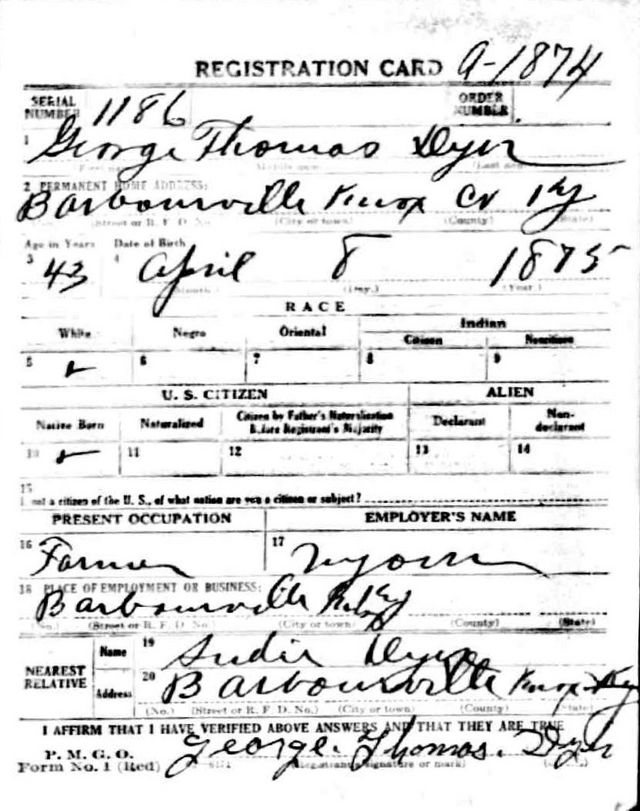 REGISTRATION CARD A-1874
SERIAL NUMBER 1186 ORDER NUMBER
1 George Thomas Dyer
2 PERMANENT HOME ADDRESS:
Barbourville Knox Co Ky
(Street or R. F. D. No.) (City or town) (County) (State)
Age in Years Date of Birth
3 43 4 April 8 1875
(Month.) (Day.) (Year.)
RACE
White Negro Oriental Indian
Citizen Noncitizen
5 6 7 8 9
U. S. CITIZEN ALIEN
Native Born Naturalized Citizen by Father's Naturalization Before Registrant's Majority Declarant Non-declarant
10 11 12 13 14
15
not a citizen of the U. S., of what nation are you a citizen or subject?
PRESENT OCCUPATION EMPLOYER'S NAME
16 Farmer 17
18 PLACE OF EMPLOYMENT OR BUSINESS:
Barbourville Knox Ky
(No.) (Street or R. F. D. No.) (City or town) (County) (State)
NEAREST RELATIVE Name 19 Dyer
Address 20 Barbourville Knox Ky
(No.) (Street or R. F. D. No.) (City or town) (County) (State)
I AFFIRM THAT I HAVE VERIFIED ABOVE ANSWERS AND THAT THEY ARE TRUE
P. M. G. O.
Form No. 1 (Red) George. Thomas. Dyer
(Registrant's signature or mark)